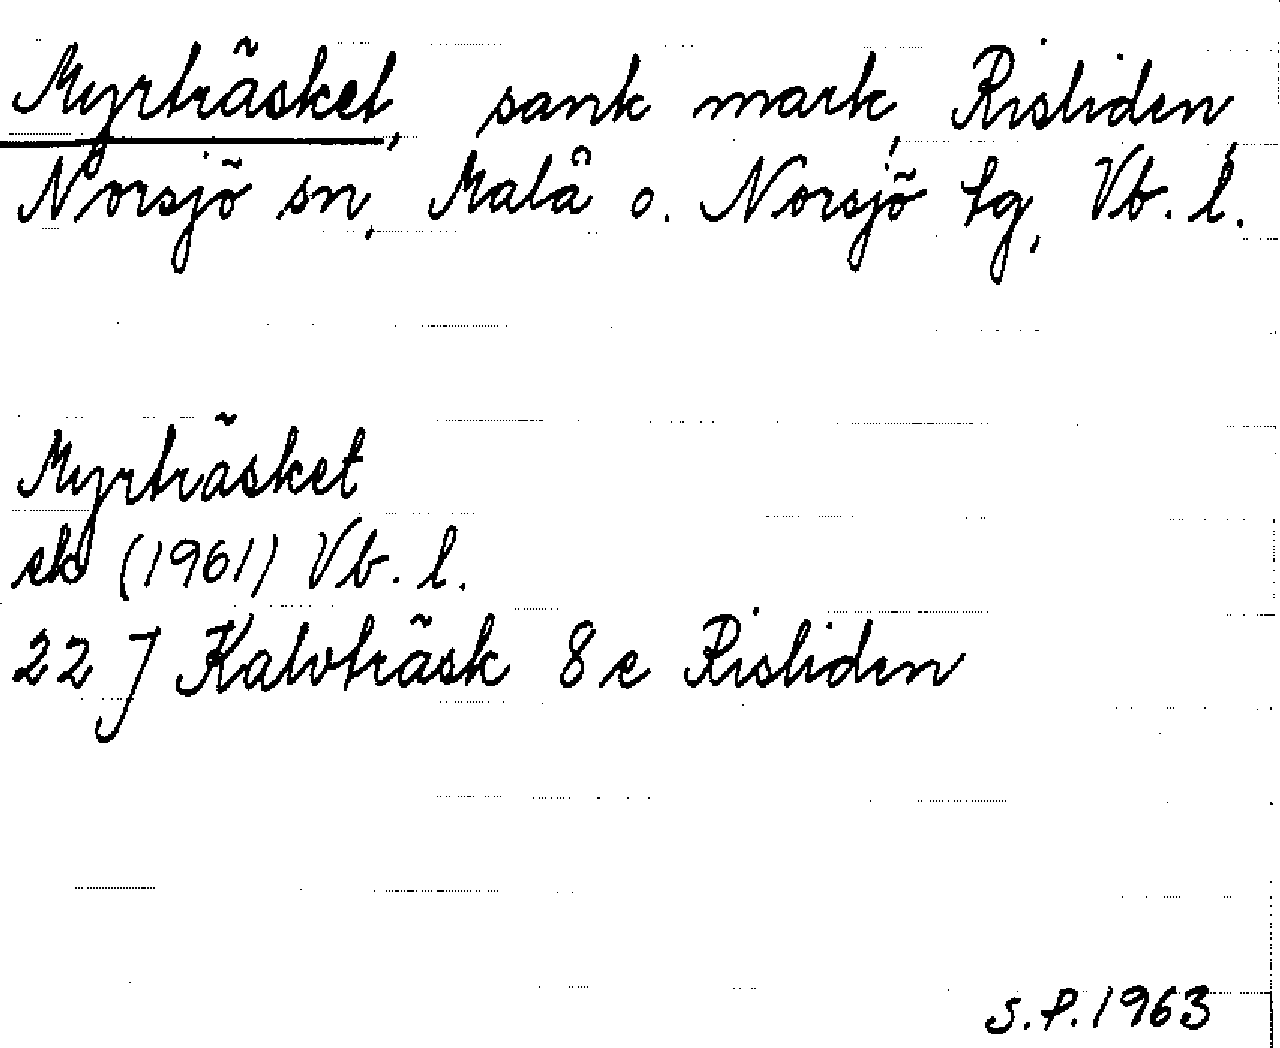 Myrträsket, sank mark, Risliden
Norsjö sn, Malå o. Norsjö tg, Vb. l.
Myrträsket
ek (1961) Vb. l.
22 J Kalvträsk 8 e Risliden
S.P. 1963